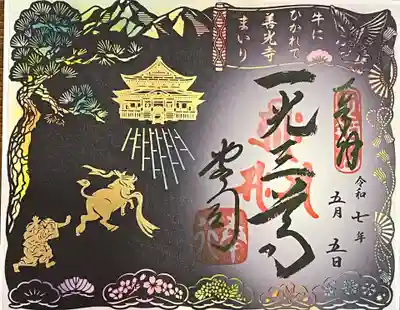 奉拝
令和七年
五月五日
牛に
ひかれて
善光寺
まいり
一光三尊